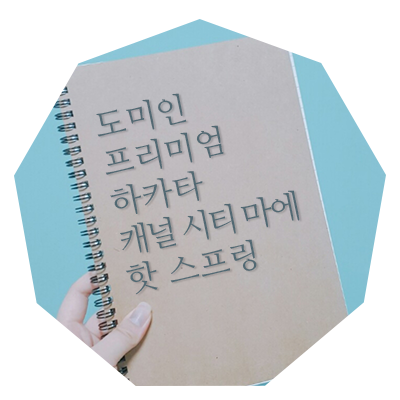 도미인
프리미엄
하카타
캐널 시티 마에
핫 스프링